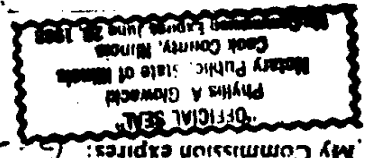 My Commission expires:
"OFFICIAL SEAL"
Phyllis A Glowacki
Notary Public, State of Illinois
Cook County, Illinois
My Commission Expires June